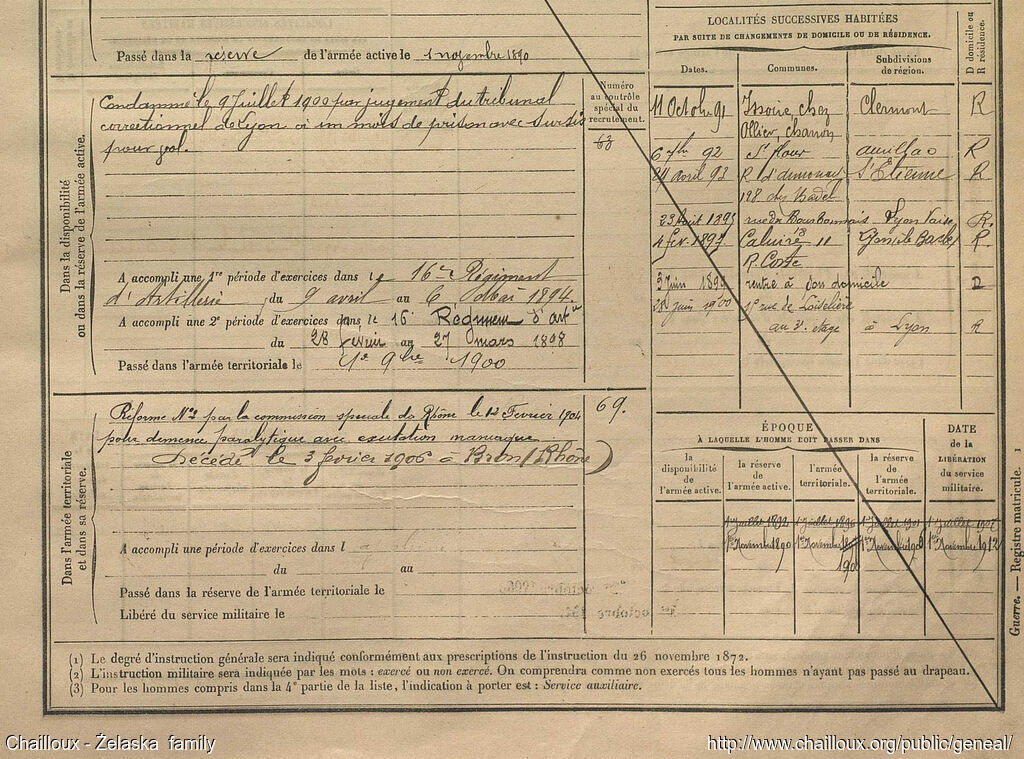 Passé dans la réserve de l'armée active le 1 novembre 1890
Dans la disponibilité
ou dans la réserve de l'armée active.
Condamné le 9 Juillet 1900 par jugement du tribunal
correctionnel de Lyon à un mois de prison avec sursis
pour
A accompli une 1re période d'exercices dans le 16e Régiment
d'Artillerie du 9 avril au 6 mai 1894.
A accompli une 2e période d'exercices dans le 16e Régiment d'artie
du 28 février au 27 mars 1898
Passé dans l'armée territoriale le 1er 9bre 1900
Numéro
au contrôle
spécial du
recrutement.
63
Dans l'armée territoriale
et dans sa réserve.
Réformé No 2 par la commission spéciale du Rhône le 12 Février 1904
pour démence paralytique avec excitation maniaque
Décédé le 3 février 1906 à Bron (Rhône)
69.
A accompli une période d'exercices dans l
du au
Passé dans la réserve de l'armée territoriale le
Libéré du service militaire le
LOCALITÉS SUCCESSIVES HABITÉES
PAR SUITE DE CHANGEMENTS DE DOMICILE OU DE RÉSIDENCE.
Dates. Communes. Subdivisions de région. D domicile ou R résidence.
11 Octobre 91 Issoire chez Clermont R
Ollier, charron
6 7bre 92 St flour aurillac R
24 avril 93 St Etienne R
128 chez
23 Août 1895 rue du Bourbonnais Lyon Vaise R.
4 fev. 1897 Caluire 11 R.
R. Coste
3 juin 1899 rentré à son domicile D
juin 1900 rue de
au 3e étage à Lyon R
ÉPOQUE
À LAQUELLE L'HOMME DOIT PASSER DANS
la disponibilité de l'armée active.
la réserve de l'armée active.
l'armée territoriale.
la réserve de l'armée territoriale.
DATE de la LIBÉRATION du service militaire.
1 Juillet 1892 1 Juillet 1 Juillet 1 Juillet
1er Novembre 1890 1er Novembre 1er Novembre 1er Novembre 1912
1900
(1) Le degré d'instruction générale sera indiqué conformément aux prescriptions de l'instruction du 26 novembre 1872.
(2) L'instruction militaire sera indiquée par les mots : exercé ou non exercé. On comprendra comme non exercés tous les hommes n'ayant pas passé au drapeau.
(3) Pour les hommes compris dans la 4e partie de la liste, l'indication à porter est : Service auxiliaire.
Guerre. — Registre matricule. 1
Chailloux - Żelaska family
http://www.chailloux.org/public/geneal/